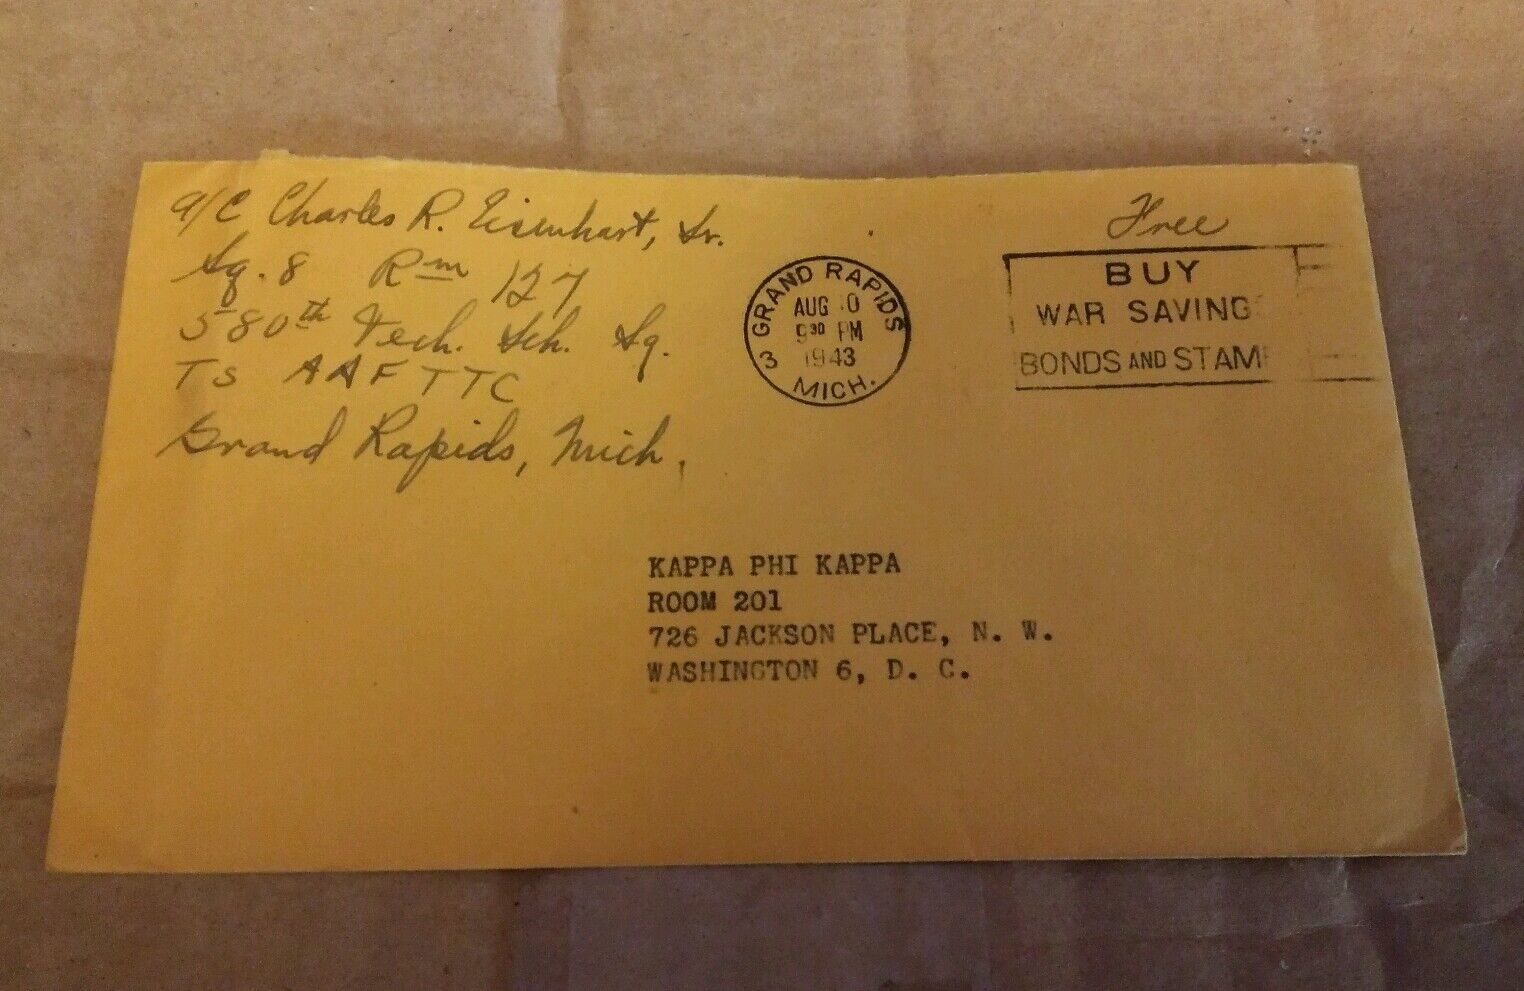 a/C Charles R. Eisenhart, Sr.
Sq. 8 Rm 127
580th Tech. Sch. Sq.
TS AAFTTC
Grand Rapids, Mich.
Free
GRAND RAPIDS
AUG 10
9 30 PM
1943
3 MICH.
BUY
WAR SAVINGS
BONDS AND STAM
KAPPA PHI KAPPA
ROOM 201
726 JACKSON PLACE, N. W.
WASHINGTON 6, D. C.